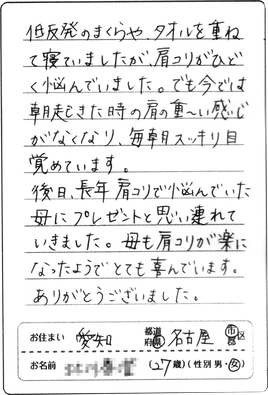 低反発のまくらや、タオルを重ね
て寝ていましたが、肩コリがひど
く悩んでいました。でも今では
朝起きた時の肩の重〜い感じ
がなくなり、毎朝スッキリ目
覚めています。
後日、長年肩コリで悩んでいた
母にプレゼントと思い連れて
いきました。母も肩コリが楽に
なったようでとても喜んでいます。
ありがとうございました。
お住まい 愛知 都道府県 名古屋 市区
お名前 (27歳)(性別 男・女)